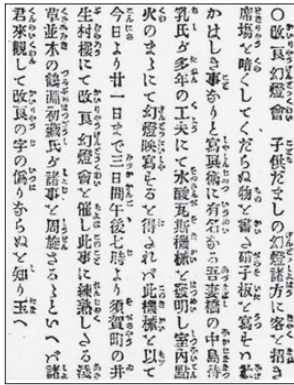 ○改良幻燈會　子供だましの幻燈諸方に客と招き
席塲を暗くしてくだらぬ物を書き硝子板を寫もい
かはしき事ありと寫眞術に有名なる吾妻橋の中島待
乳氏が多年の工夫にて水酸瓦斯機械を發明し室內點
火のまゝにて幻燈映寫せるを得されバ此機械を以て
今日より廿一日まで三日間午後七時より須賀町の井
生村樓にて改良幻燈會を催し此事に練熟しさる淺
草並木の鶴淵初藏氏が諸事を周旋さるゝといへバ諸
君來觀して改良の字の僞りならぬを知り玉へ